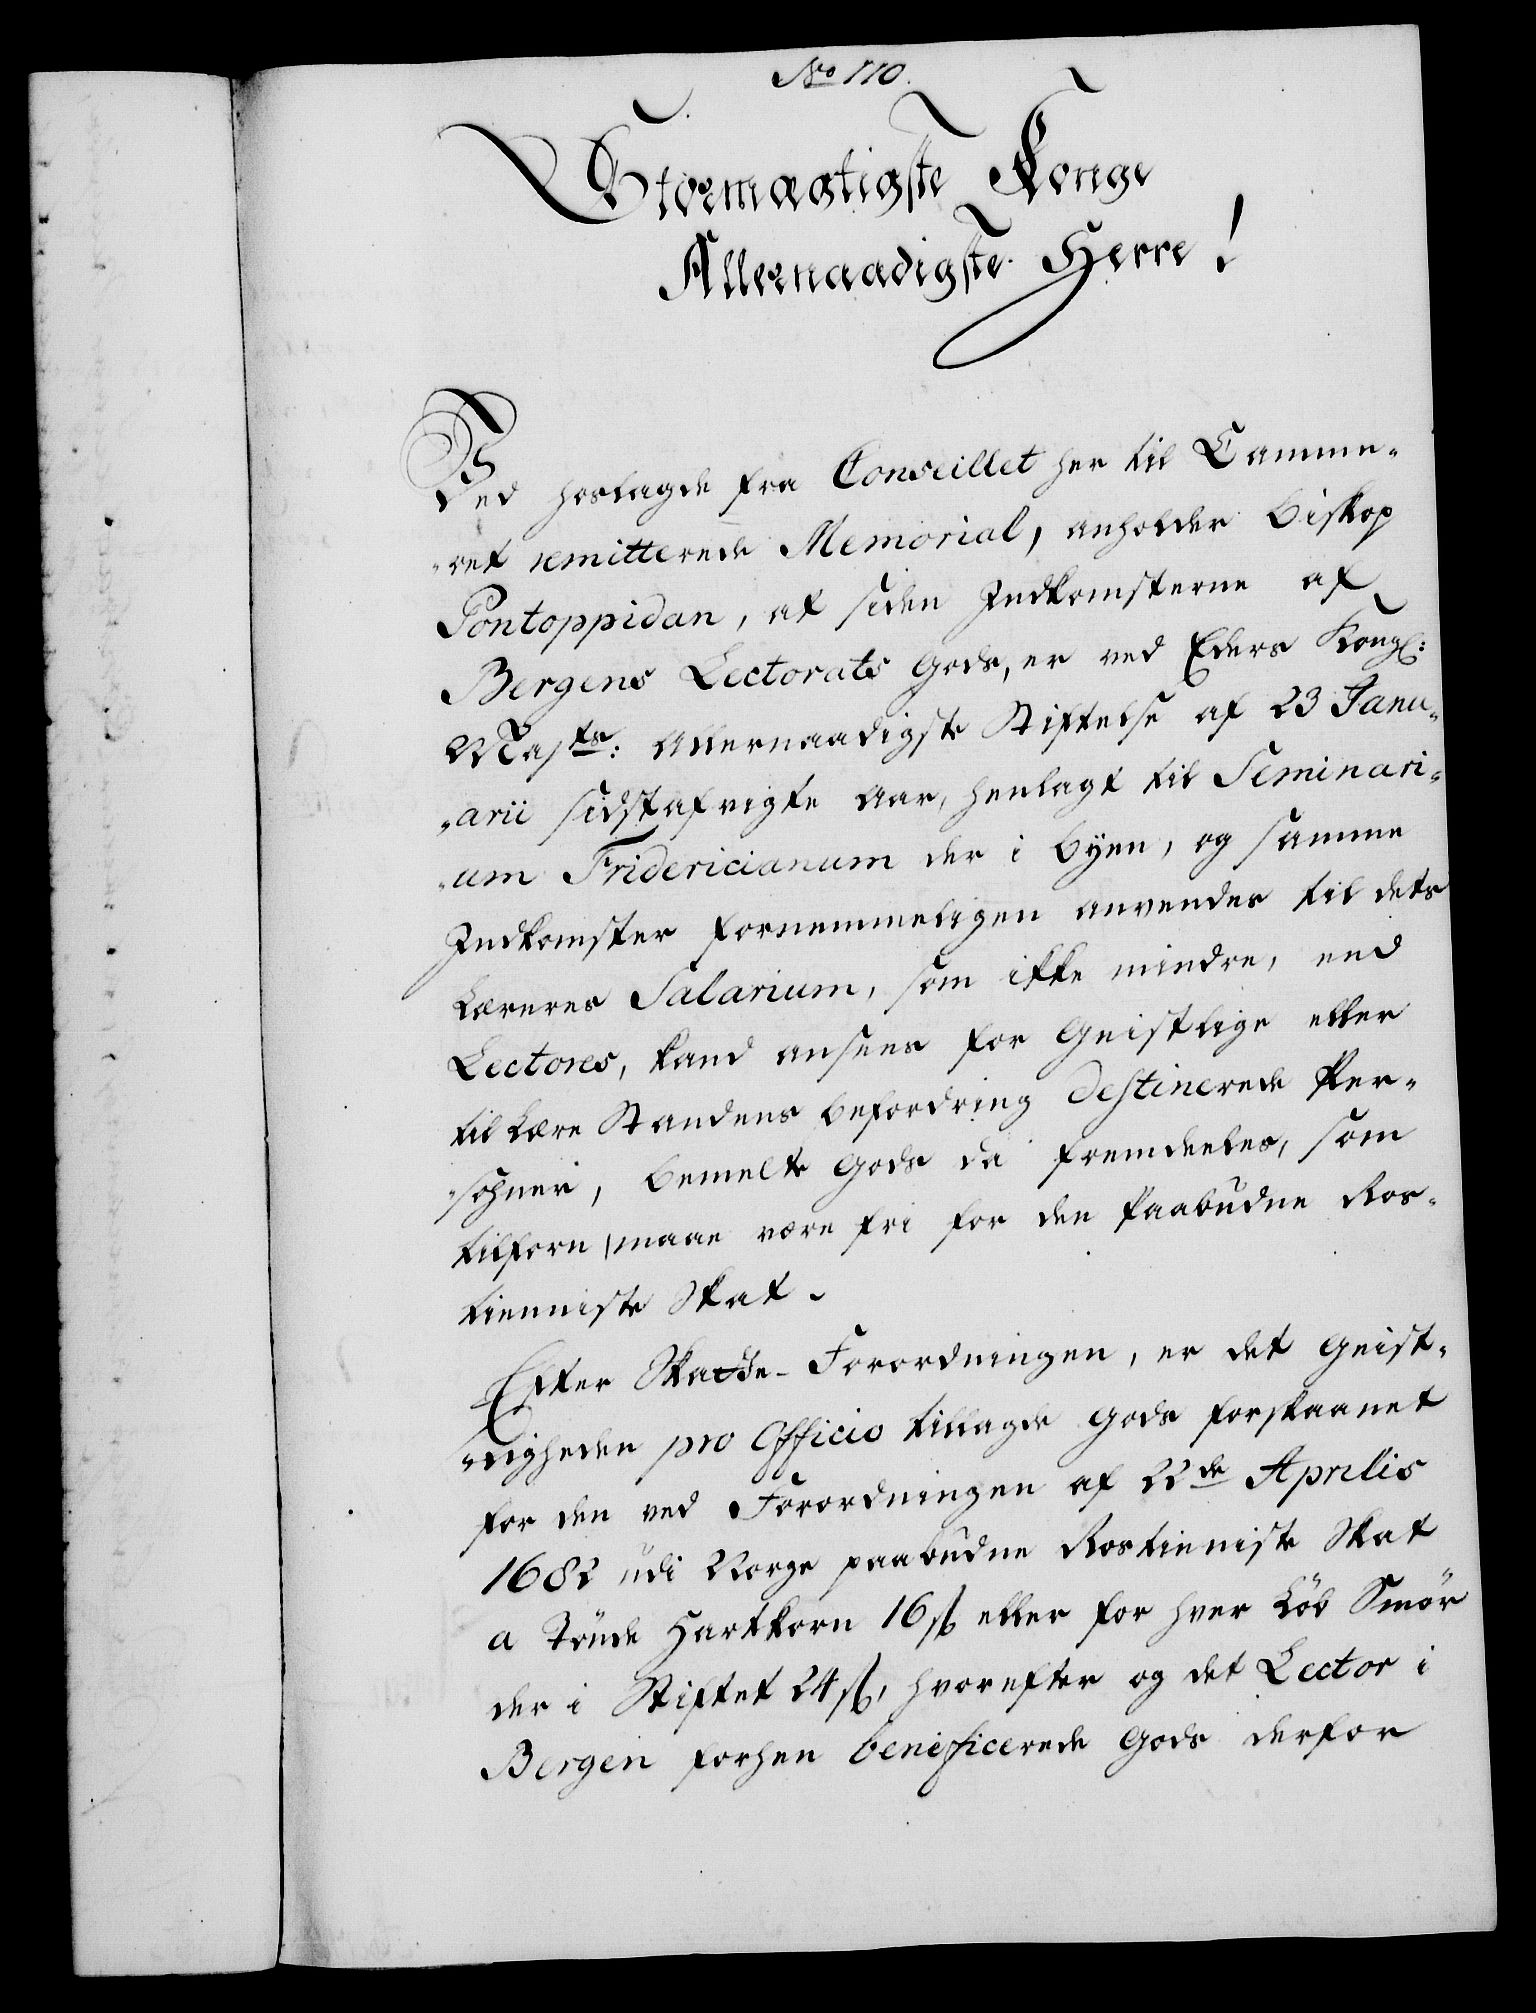 No 110.
Stormægtigste Konge
Allernaadigste Herre!
Ved hoslagde fra Conseillet her til Camme-
-ret remitterede Memorial, anholder Biskop
Pontoppidan, at siden Indkomsterne af
Bergens Lectorats Gods, er ved Eders Kongl:
Majts: Allernaadigste Stiftelse af 23 Janu-
-arii sidstafvigte Aar, henlagt til Seminari-
-um Fridericianum der i Byen, og samme
Indkomster fornemmeligen anvendes til dets
Læreres Salarium, som ikke mindre, end
Lectores, kand ansees for Geistlige eller
til Lære Standens befordring destinerede Per-
-sohner, bemelte Gods da fremdeeles, som
tilforn maae være fri for den Paabudne Ros-
tienniste Skat.
Efter Skatte-Forordningen, er det Geist-
-ligheden pro Officio tillagde Gods forskaanet
for den ved Forordningen af 22de Aprilis
1682 udi Norge paabudne Rostieniste Skat
a Tønde Hartkorn 16 ß eller for hver Löb Smör
der i Stiftet 24 ß, hvorefter og det Lector i
Bergen forhen beneficerede Gods derfor